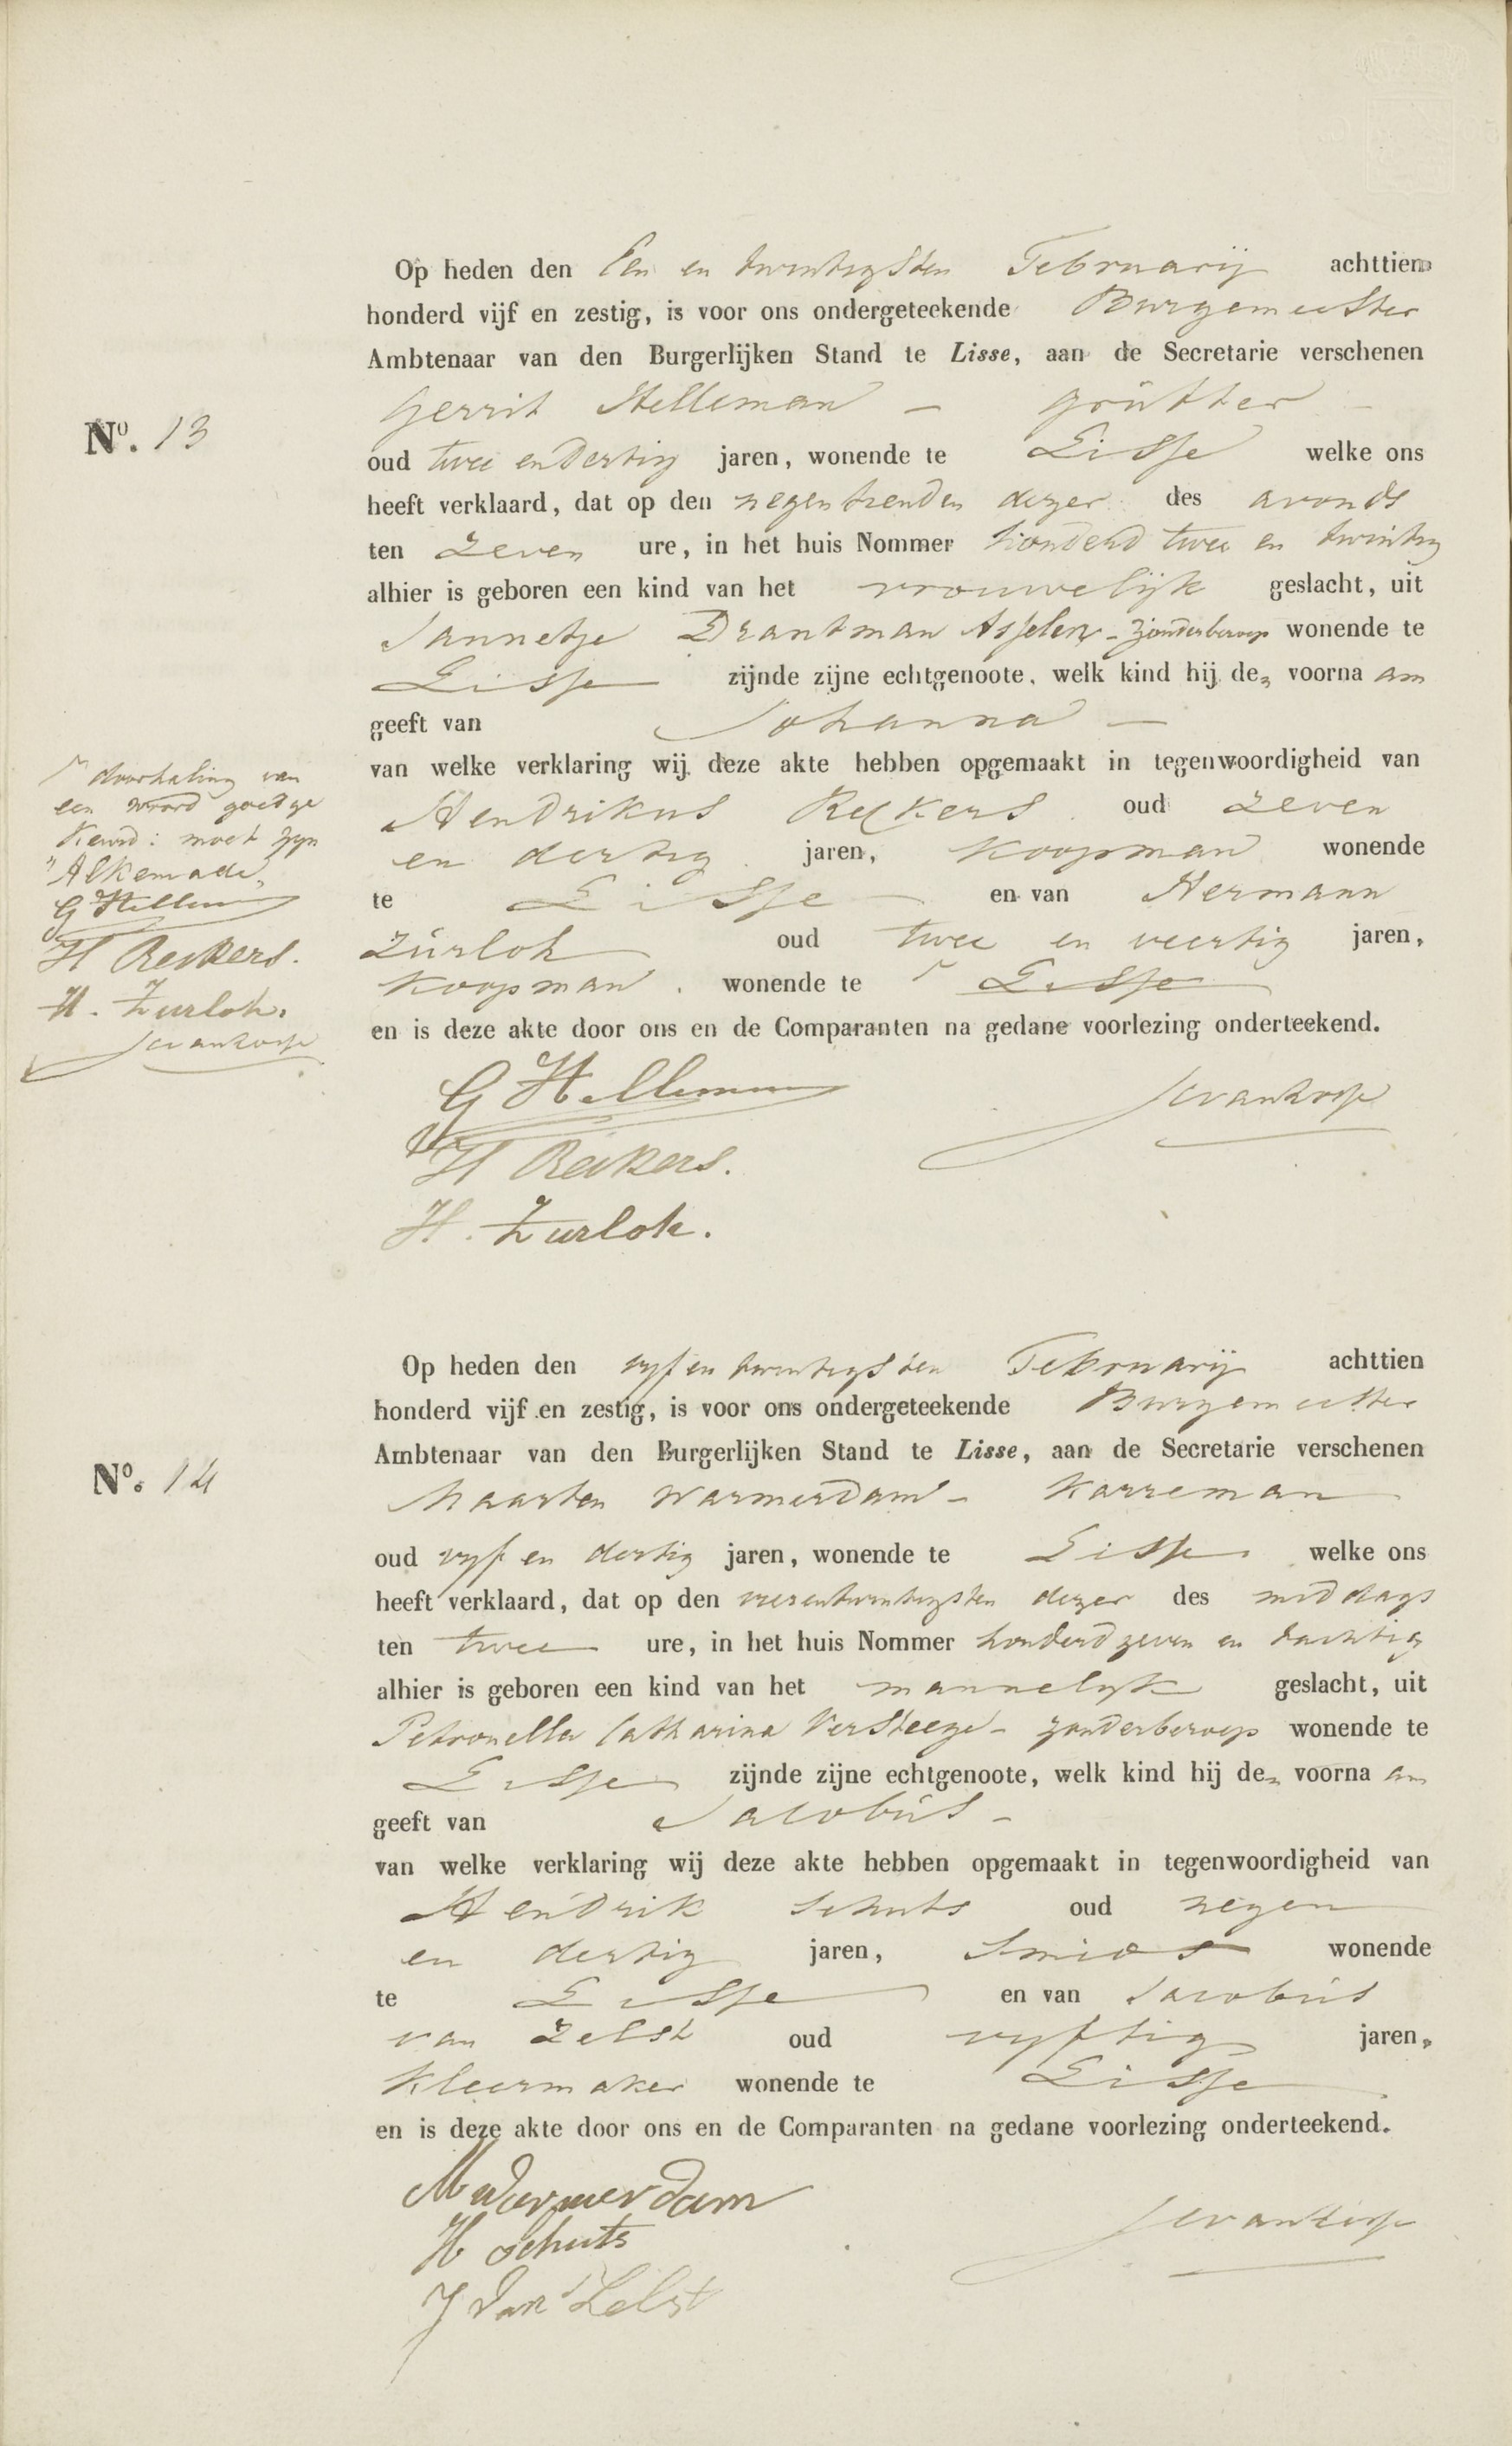 Op heden den Een en twintigsten Februarij achttien
honderd vijf en zestig, is voor ons ondergeteekende Burgemeester
Ambtenaar van den Burgerlijken Stand te Lisse, aan de Secretarie verschenen
Gerrit Stelleman - grutter -
No. 13
oud twee en dertig jaren, wonende te Lisse welke ons
heeft verklaard, dat op den negentienden dezer des avonds
ten zeven ure, in het huis Nommer honderd twee en twintig
alhier is geboren een kind van het vrouwelijk geslacht, uit
Jannetje Drantman Asselen - zonder beroep wonende te
Lisse zijnde zijne echtgenoote, welk kind hij den voorna am
geeft van Johanna -
van welke verklaring wij deze akte hebben opgemaakt in tegenwoordigheid van
Hendrikus Reckers oud zeven
en dertig jaren, koopman wonende
te Lisse en van Hermann
Zurloh oud twee en veertig jaren,
koopman wonende te Lisse
en is deze akte door ons en de Comparanten na gedane voorlezing onderteekend.
doorhaling van
een woord goedge
keurd: moet zyn
"Alkemade"
G Stelleman
H Reckers.
H. Zurloh.
G Stelleman
H Reckers.
H. Zurloh.
Op heden den vyf en twintigsten Februarij achttien
honderd vijf en zestig, is voor ons ondergeteekende Burgemeester
Ambtenaar van den Burgerlijken Stand te Lisse, aan de Secretarie verschenen
No. 14
Maarten Warmerdam - Karreman
oud vyf en dertig jaren, wonende te Lisse welke ons
heeft verklaard, dat op den vierentwintigsten dezer des middags
ten twee ure, in het huis Nommer honderd zeven en tachtig
alhier is geboren een kind van het mannelyk geslacht, uit
Petronella Catharina Versteege - zonder beroep wonende te
Lisse zijnde zijne echtgenoote, welk kind hij den voorna am
geeft van Jacobus -
van welke verklaring wij deze akte hebben opgemaakt in tegenwoordigheid van
Hendrik Schuts oud negen
en dertig jaren, Smid wonende
te Lisse en van Jacobus
van Zelst oud vyftig jaren,
Kleermaker wonende te Lisse
en is deze akte door ons en de Comparanten na gedane voorlezing onderteekend.
M Warmerdam
H Schuts
J Van Zelst